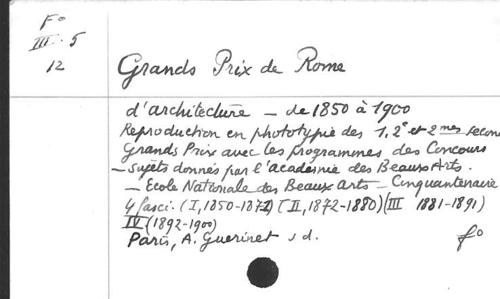 Fo
III. 5
12
Grands Prix de Rome
d'architecture — de 1850 à 1900
Reproduction en phototypie des 1, 2e et 2mes second
Grands Prix avec les programmes des Concours
— Sujets donnés par l'académie des Beaux Arts.
— Ecole Nationale des Beaux Arts — Cinquantenaire
4 fasci. (I, 1850-1871) (II, 1872-1880) (III 1881-1891)
IV (1892-1900)
Paris, A. Guerinet s d.
fo